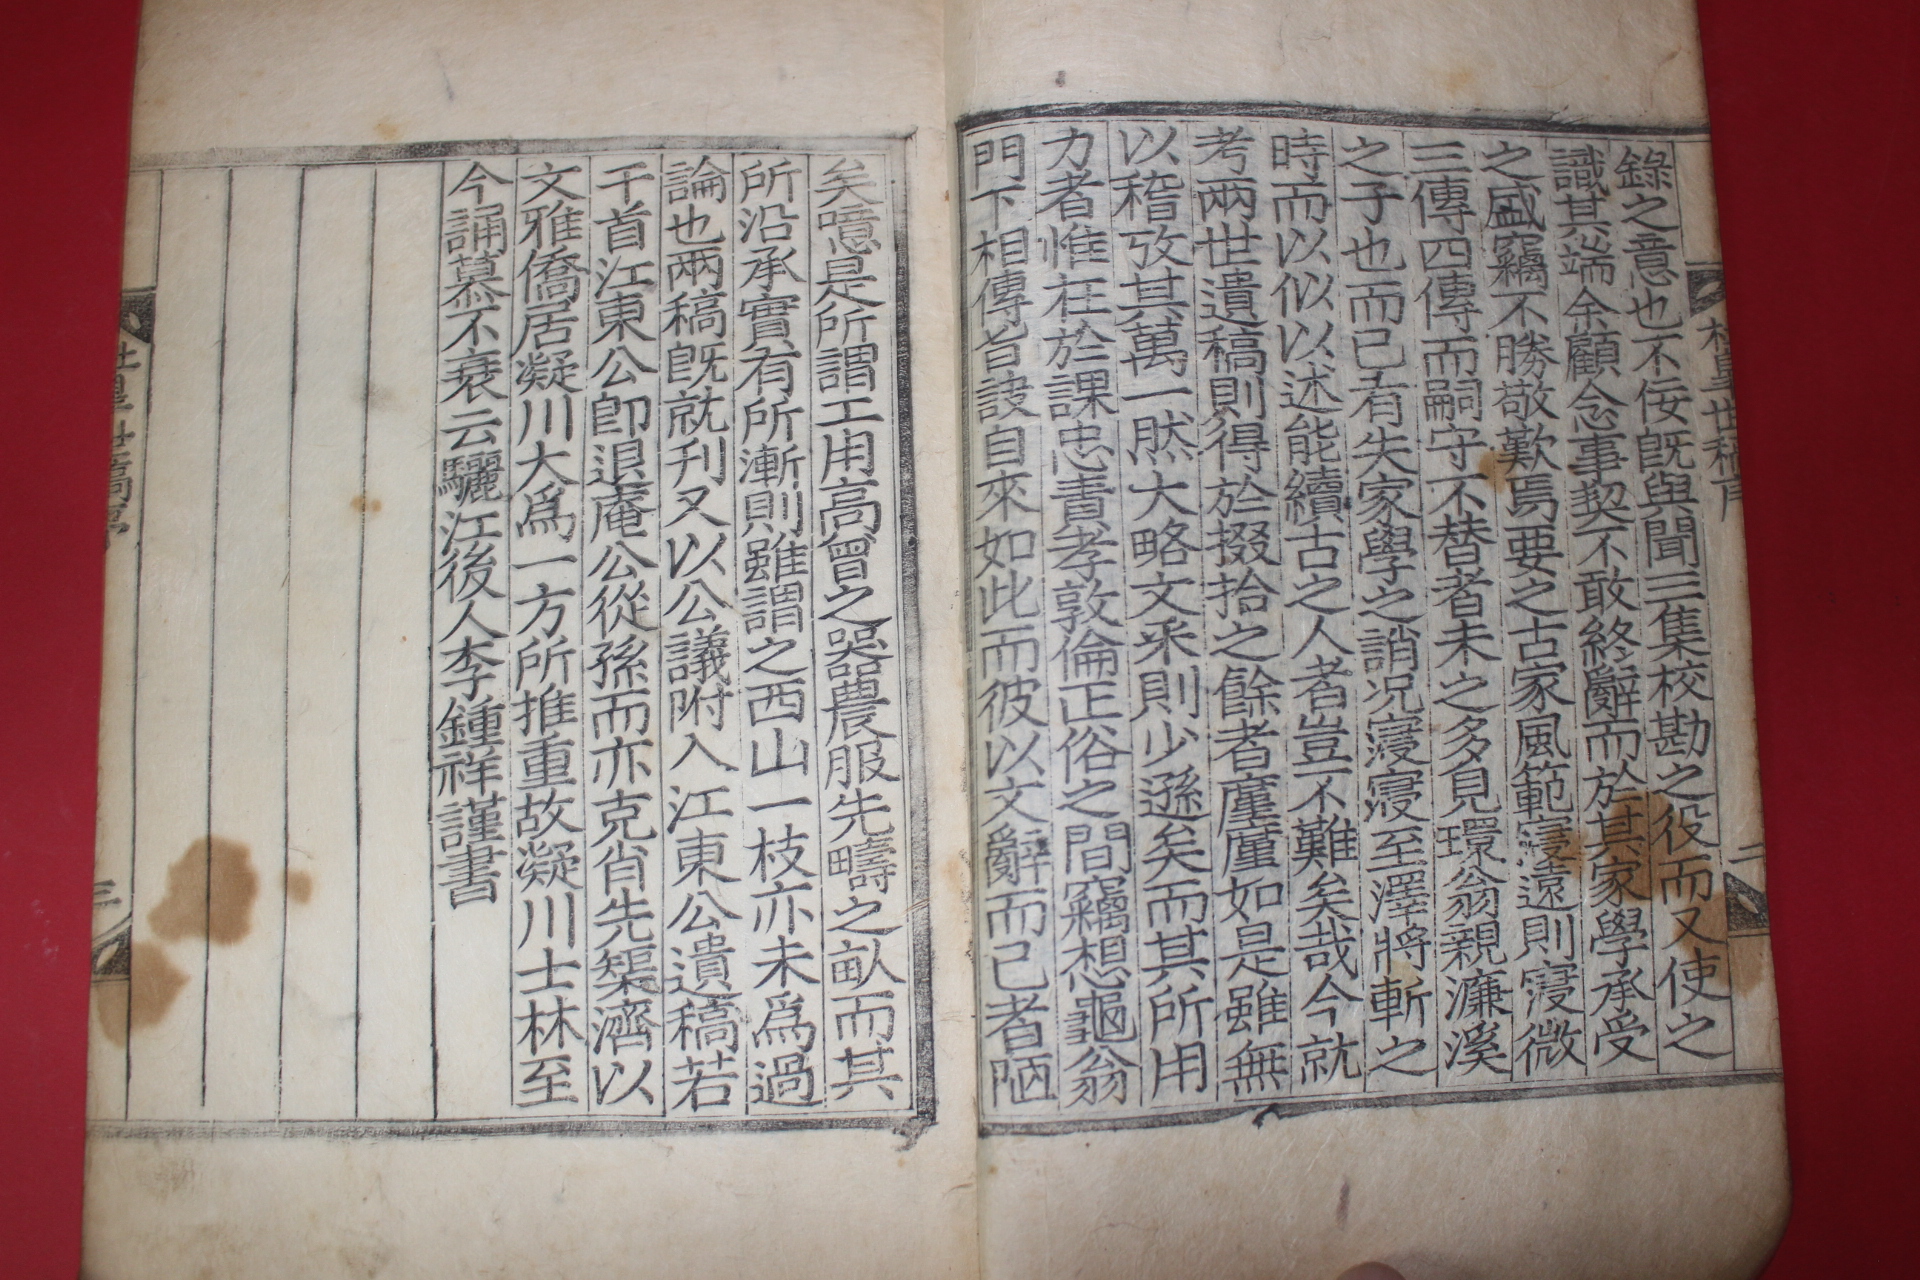 錄之意也不佞旣與聞三集校勘之役而又使之
識其端余顧念事契不敢終辭而於其家學承受
之盛竊不勝敬歎焉要之古家風範寖遠則寖微
三傳四傳而嗣守不替者未之多見環翁親濂溪
之子也而已有失家學之誚况寖寖至澤將斬之
時而以似以述能續古之人者豈不難矣哉今就
考兩世遺稿則得於掇拾之餘者廑廑如是雖無
以稽攷其萬一然大略文釆則少遜矣而其所用
力者惟在於課忠責孝敦倫正俗之間竊想龜翁
門下相傳旨訣自來如此而彼以文辭而已者陋
矣噫是所謂工用高曾之器農服先疇之畝而其
所沿承實有所漸則雖謂之西山一枝亦未爲過
論也兩稿旣就刊又以公議附入江東公遺稿若
干首江東公卽退庵公從孫而亦克肖先榘濟以
文雅僑居凝川大爲一方所推重故凝川士林至
今誦慕不衰云驪江後人李鍾祥謹書
三